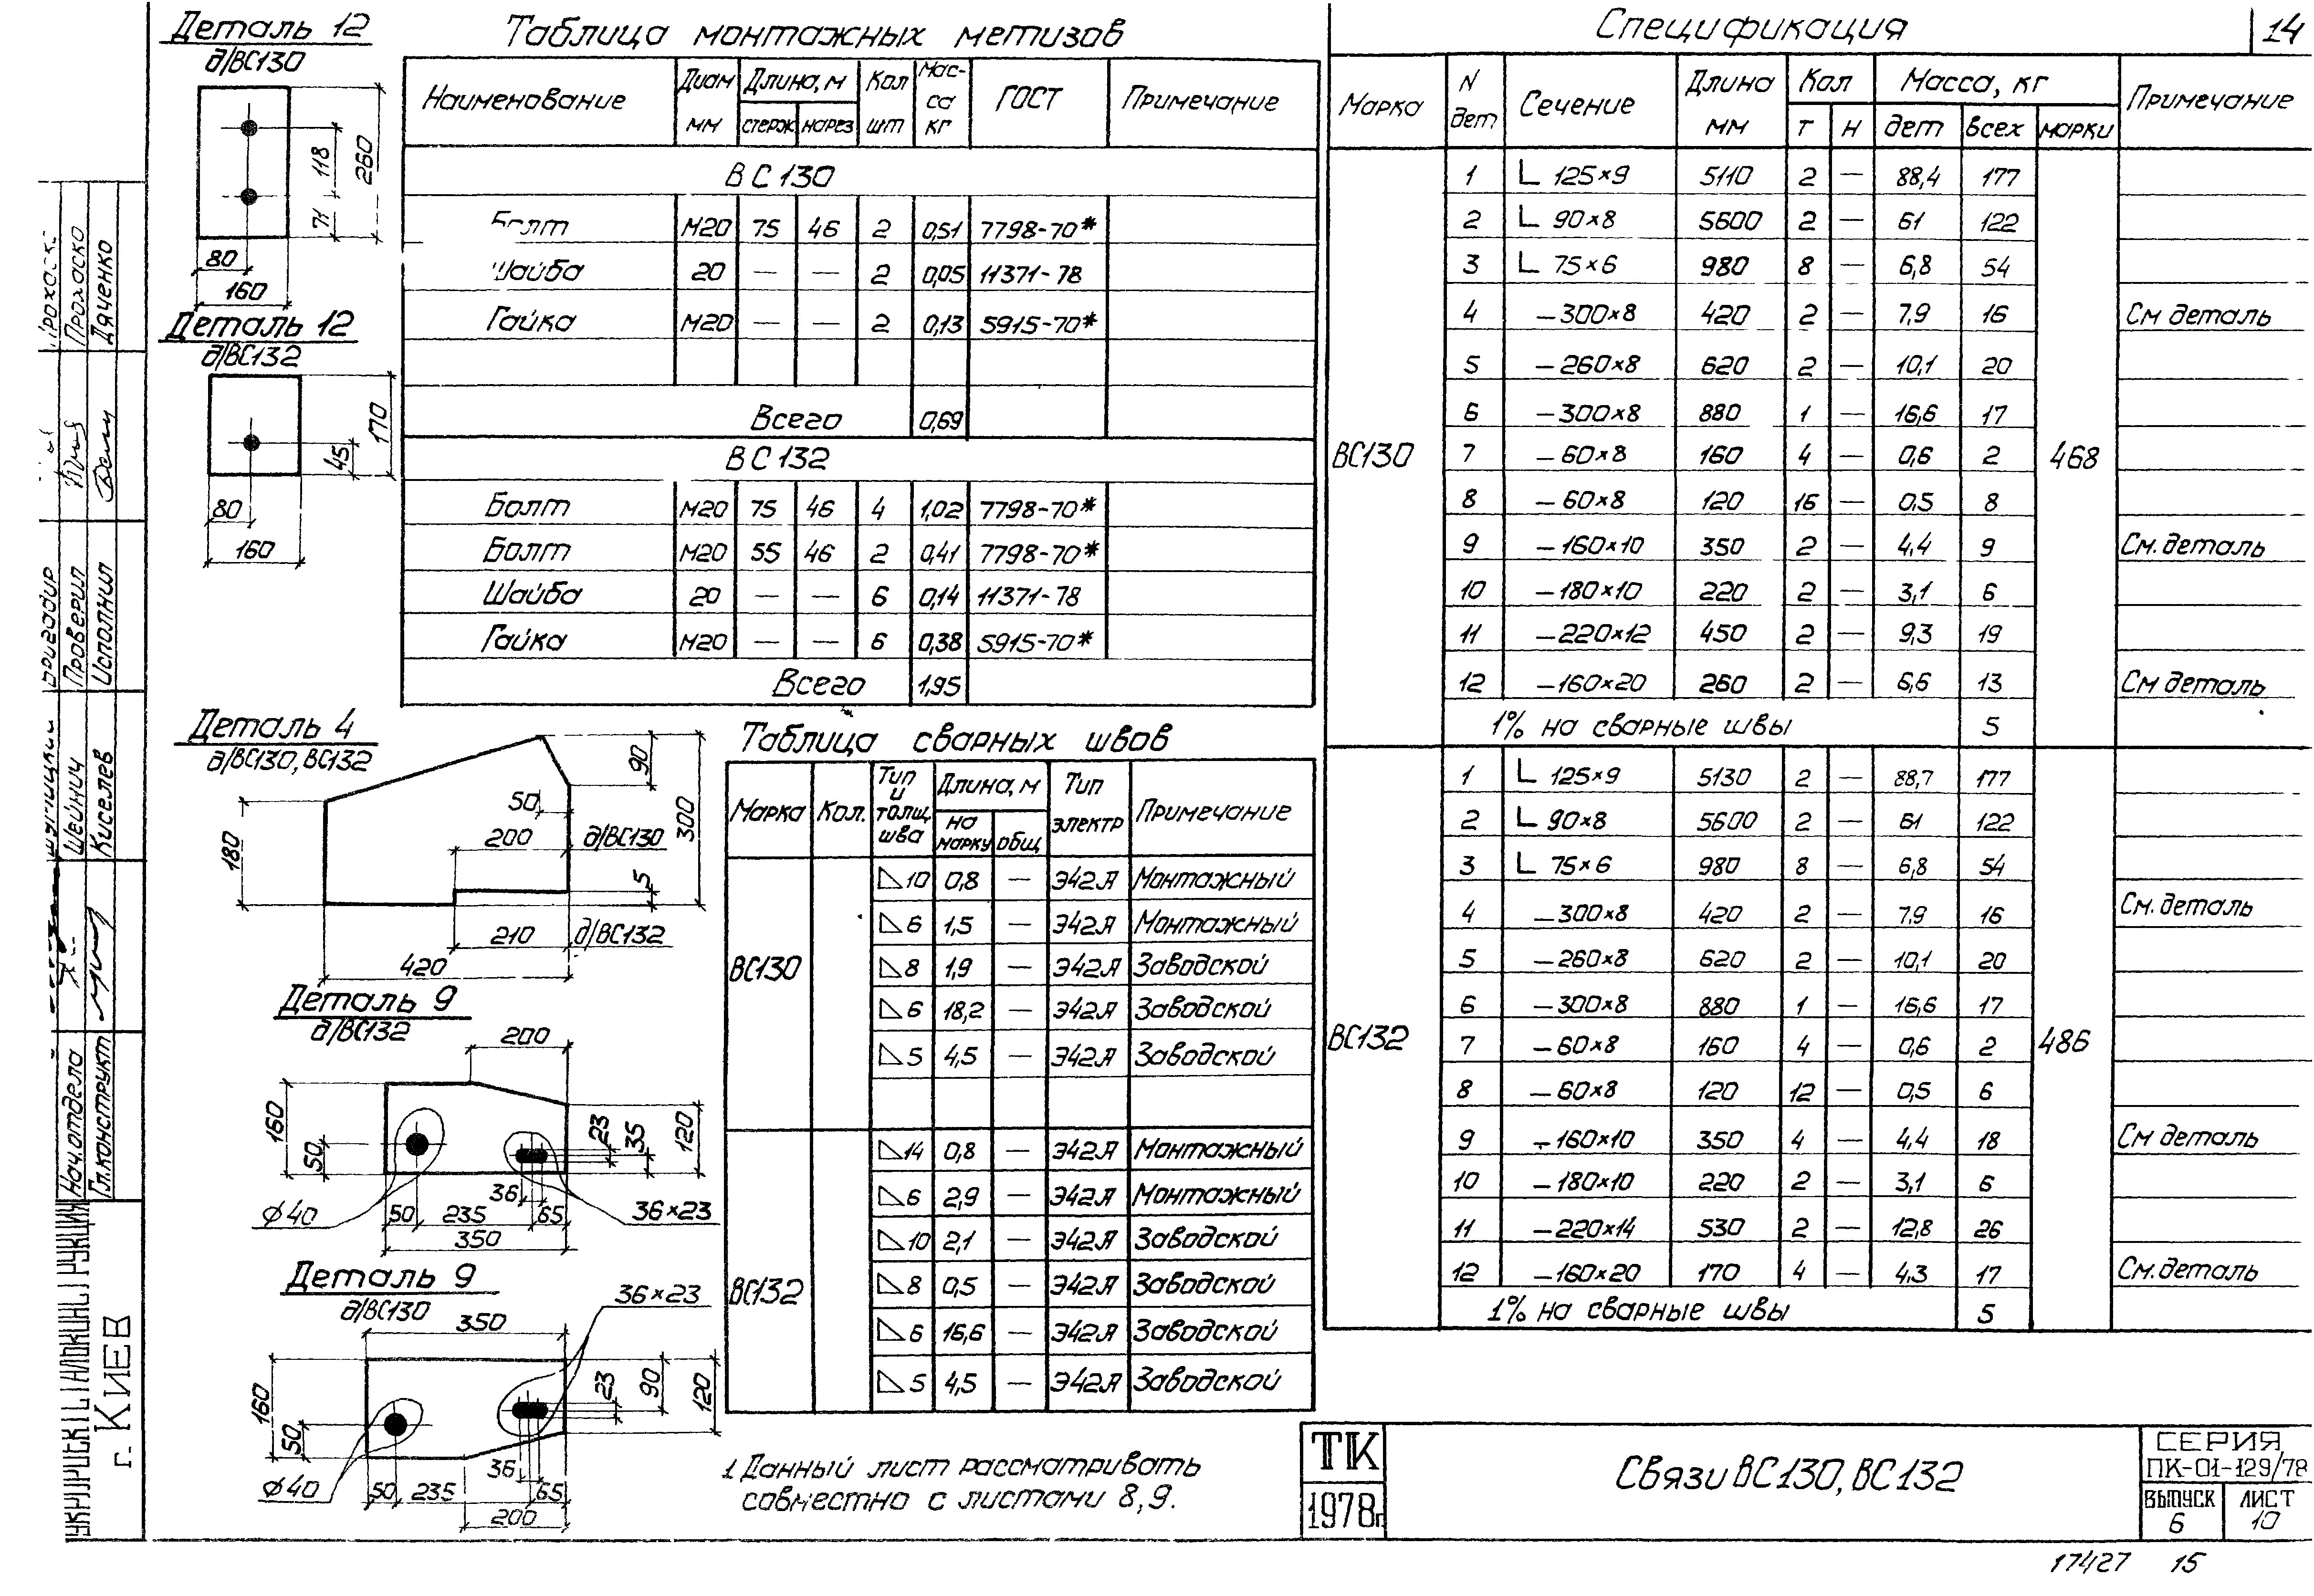 Деталь 12
д/ВС130
118
260
71
80
160
Деталь 12
д/ВС132
170
45
80
160
Таблица монтажных метизов
Наименование Диам мм Длина, м стерж нарез Кол шт Мас-са кг ГОСТ Примечание
ВС130
Болт М20 75 46 2 0,51 7798-70*
Шайба 20 — — 2 0,05 11371-78
Гайка М20 — — 2 0,13 5915-70*
Всего 0,69
ВС132
Болт М20 75 46 4 1,02 7798-70*
Болт М20 55 46 2 0,41 7798-70*
Шайба 20 — — 6 0,14 11371-78
Гайка М20 — — 6 0,38 5915-70*
Всего 1,95
Деталь 4
д/ВС130, ВС132
90
50
300
200 д/ВС130
180
5
210 д/ВС132
420
Деталь 9
д/ВС132
200
160
50
23
35
120
36
ф40
50 235 65
36×23
350
Деталь 9
д/ВС130
36×23
350
160
50
23
90
120
36
ф40
50 235 65
200
Таблица сварных швов
Марка Кол. Тип и толщ. шва Длина, м на марку общ Тип электр Примечание
ВС130
◺10 0,8 — Э42А Монтажный
◺6 1,5 — Э42А Монтажный
◺8 1,9 — Э42А Заводской
◺6 18,2 — Э42А Заводской
◺5 4,5 — Э42А Заводской
ВС132
◺14 0,8 — Э42А Монтажный
◺6 2,9 — Э42А Монтажный
◺10 2,1 — Э42А Заводской
◺8 0,5 — Э42А Заводской
◺6 16,6 — Э42А Заводской
◺5 4,5 — Э42А Заводской
1 Данный лист рассматривать
совместно с листами 8,9.
Спецификация
14
Марка N дет Сечение Длина мм Кол т н Масса, кг дет всех марки Примечание
ВС130 468
1 L 125×9 5110 2 — 88,4 177
2 L 90×8 5600 2 — 61 122
3 L 75×6 980 8 — 6,8 54
4 —300×8 420 2 — 7,9 16 См деталь
5 —260×8 620 2 — 10,1 20
6 —300×8 880 1 — 16,6 17
7 —60×8 160 4 — 0,6 2
8 —60×8 120 16 — 0,5 8
9 —160×10 350 2 — 4,4 9 См. деталь
10 —180×10 220 2 — 3,1 6
11 —220×12 450 2 — 9,3 19
12 —160×20 260 2 — 6,6 13 См деталь
1% на сварные швы 5
ВС132 486
1 L 125×9 5130 2 — 88,7 177
2 L 90×8 5600 2 — 61 122
3 L 75×6 980 8 — 6,8 54
4 —300×8 420 2 — 7,9 16 См. деталь
5 —260×8 620 2 — 10,1 20
6 —300×8 880 1 — 16,6 17
7 —60×8 160 4 — 0,6 2
8 —60×8 120 12 — 0,5 6
9 —160×10 350 4 — 4,4 18 См деталь
10 —180×10 220 2 — 3,1 6
11 —220×14 530 2 — 12,8 26
12 —160×20 170 4 — 4,3 17 См. деталь
1% на сварные швы 5
ТК
1978г
Связи ВС130, ВС132
СЕРИЯ
ПК-01-129/78
ВЫПУСК 6
ЛИСТ 10
17427 15
Проверил
Прохаско
Исполнил
Дяченко
Шейнич
Киселев
Нач.отдела
Гл.конструкт
г. КИЕВ